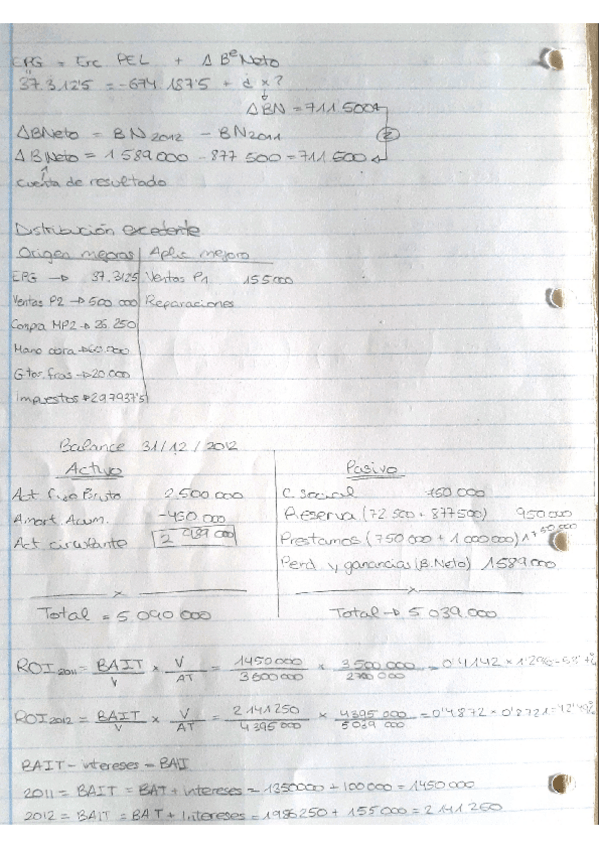 EPG = Exc PEL + Δ Bº Neto
37.312'5 = -674.187'5 + ¿x?
ΔBN = 711.500
ΔBNeto = BN2012 - BN2011 ②
ΔBNeto = 1589000 - 877500 = 711500
cuenta de resultado
Distribución excedente
Origen mejoras | Aplic mejora
EPG → 37.3125 Ventas P1 155000
Ventas P2 → 500 000 Reparaciones
Compra MP2 → 26.250
Mano obra → 60.000
Gtos. fras → 20.000
Impuestos → 297937'5
Balance 31/12/2012
Activo Pasivo
Act fijo Bruto 2.500 000 C. social 150 000
Amort. Acum. -450 000 Reserva (72 500 + 877500) 950 000
Act circulante 2 989 000 Prestamos (750 000 + 1 000000) 1750 000
Perd y ganancias (B.Neto) 1589000
Total = 5 090 000 Total → 5 039 000
ROI 2011 = BAIT/V × V/AT = 1450 000/3500 000 × 3 500 000/2700 000 = 0'4142 × 1'296 =
ROI 2012 = BAIT/V × V/AT = 2 141 250/4 395 000 × 4395 000/5 039 000 = 0'4872 × 0'8721 =
BAIT - intereses = BAI
2011 = BAIT = BAT + intereses = 1350000 + 100 000 = 1450 000
2012 = BAIT = BAT + Intereses = 1986250 + 155 000 = 2 141 250